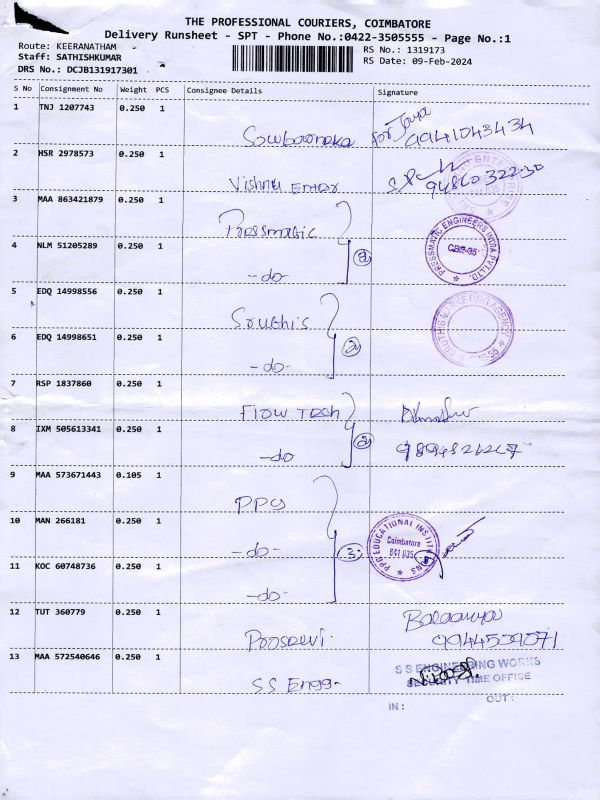 THE PROFESSIONAL COURIERS, COIMBATORE
Delivery Runsheet - SPT - Phone No.:0422-3505555 - Page No.:1
Route: KEERANATHAM
Staff: SATHISHKUMAR
DRS No.: DCJB131917301
RS No.: 1319173
RS Date: 09-Feb-2024
S No Consignment No Weight PCS Consignee Details Signature
1 TNJ 1207743 0.250 1
for Jaya
9941043434
2 HSR 2978573 0.250 1
Vishnu Enter
3 MAA 863421879 0.250 1
Pressmatic
PRESSMATIC ENGINEERS INDIA PVT.LTD.
CBE-35
4 NLM 51205289 0.250 1
-do- 2
5 EDQ 14998556 0.250 1
Sruthi's
SRUTHIS MARKETING AGENCY
6 EDQ 14998651 0.250 1
-do- 2
7 RSP 1837860 0.250 1
Flow Tech
8 IXM 505613341 0.250 1
-do 2
9 MAA 573671443 0.105 1
PPG
10 MAN 266181 0.250 1
-do- 3
PPG EDUCATIONAL INSTITUTIONS
Coimbatore
641 035
11 KOC 60748736 0.250 1
-do-
12 TUT 360779 0.250 1
9944509071
13 MAA 572540646 0.250 1
SS Engg-
S S ENGINEERING WORKS
SECURITY TIME OFFICE
IN : OUT :